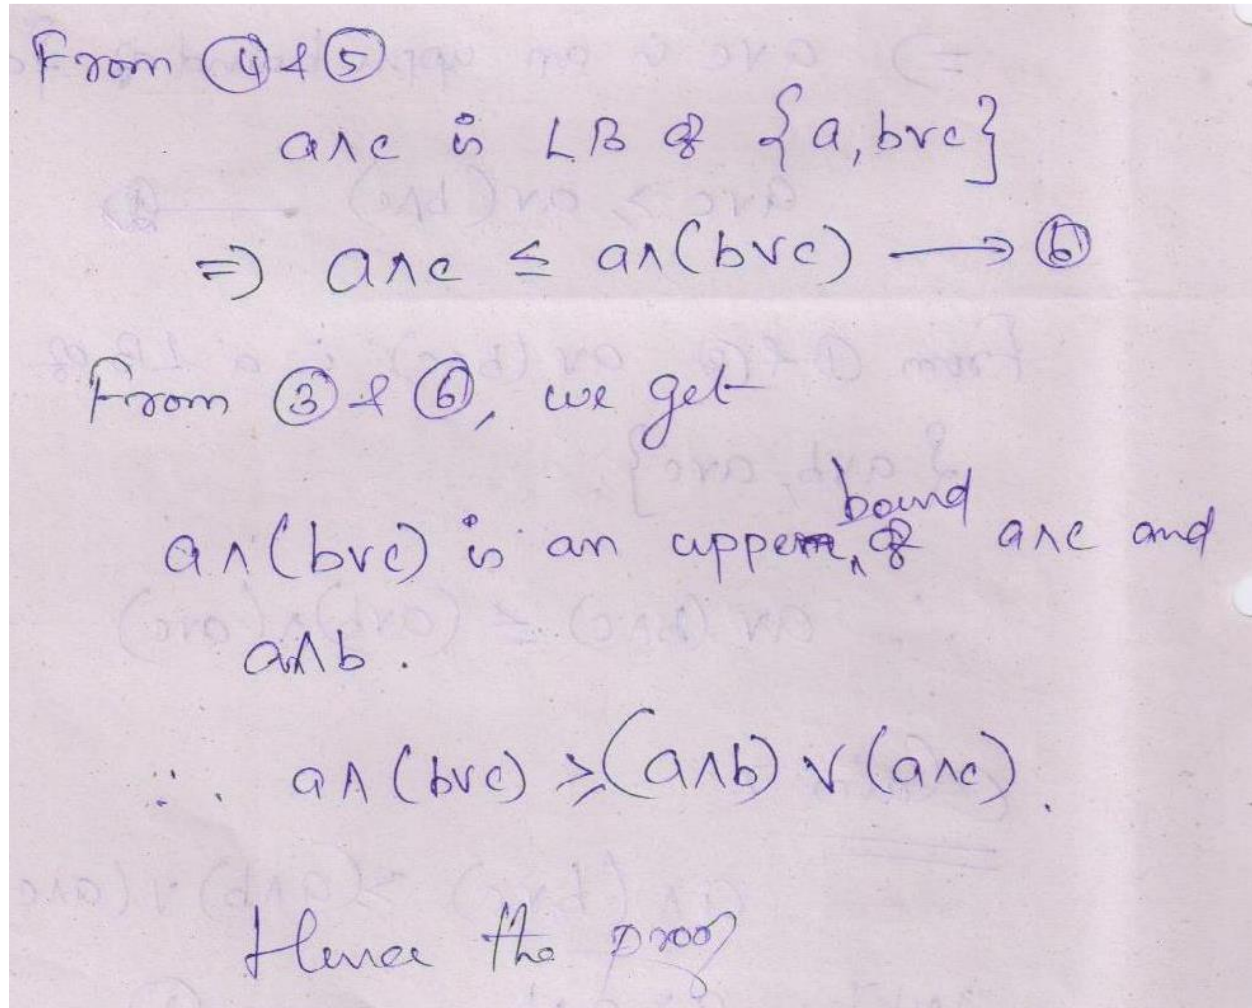 From ④ & ⑤
a∧c is LB of {a, b∨c}
⇒ a∧c ≤ a∧(b∨c) → ⑥
From ③ & ⑥, we get
a∧(b∨c) is an upper bound of a∧c and
a∧b.
∴ a∧(b∨c) ≥ (a∧b) ∨ (a∧c).
Hence the proof